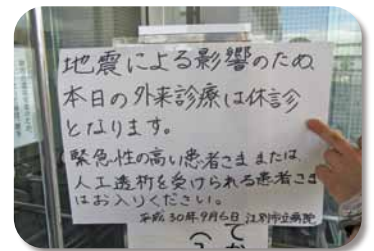 地震による影響のため
本日の外来診療は休診
となります。
緊急性の高い患者さま または、
人工透析を受けられる患者さま
はお入りください。
平成30年9月6日 江別市立病院